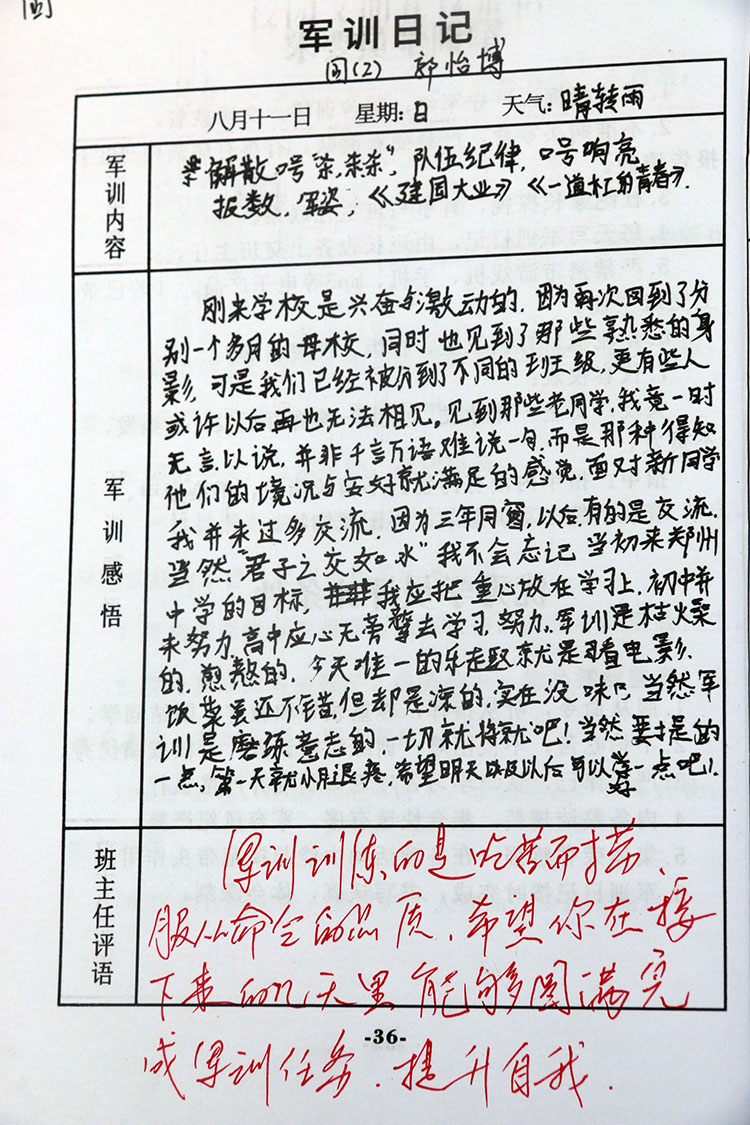 军训日记
闳(2) 郭怡博
八月十一日 星期:日 天气:晴转雨
军训内容
解散口号杀,杀杀,队伍纪律,口号响亮
报数,军姿,《建国大业》《一道杠的青春》.
军训感悟
刚来学校是兴奋与激动的,因为再次回到了分
别一个多月的母校,同时也见到了那些熟悉的身
影,可是我们已经被分到了不同的班级,更有些人
或许以后再也无法相见。见到那些老同学,我竟一时
无言以说,并非千言万语难说一句,而是那种得知
他们的境况与安好就满足的感觉,面对新同学
我并未过多交流,因为三年同窗,以后有的是交流.
当然"君子之交如水"我不会忘记当初来郑州
中学的目标,我应把重心放在学习上,初中并
未努力,高中应心无旁骛去学习,努力。军训是枯燥
的,煎熬的,今天唯一的乐趣就是看电影.
饭菜还不错,但却是凉的,实在没味口,当然军
训是磨练意志的,一切就将就吧!当然要提的
一点,第一天就小月退疼,希望明天以及以后可以好一点吧!
班主任评语
军训训练的是吃苦耐劳、
服从命令的品质,希望你在接
下来的几天里能够圆满完
成军训任务,提升自我.
-36-